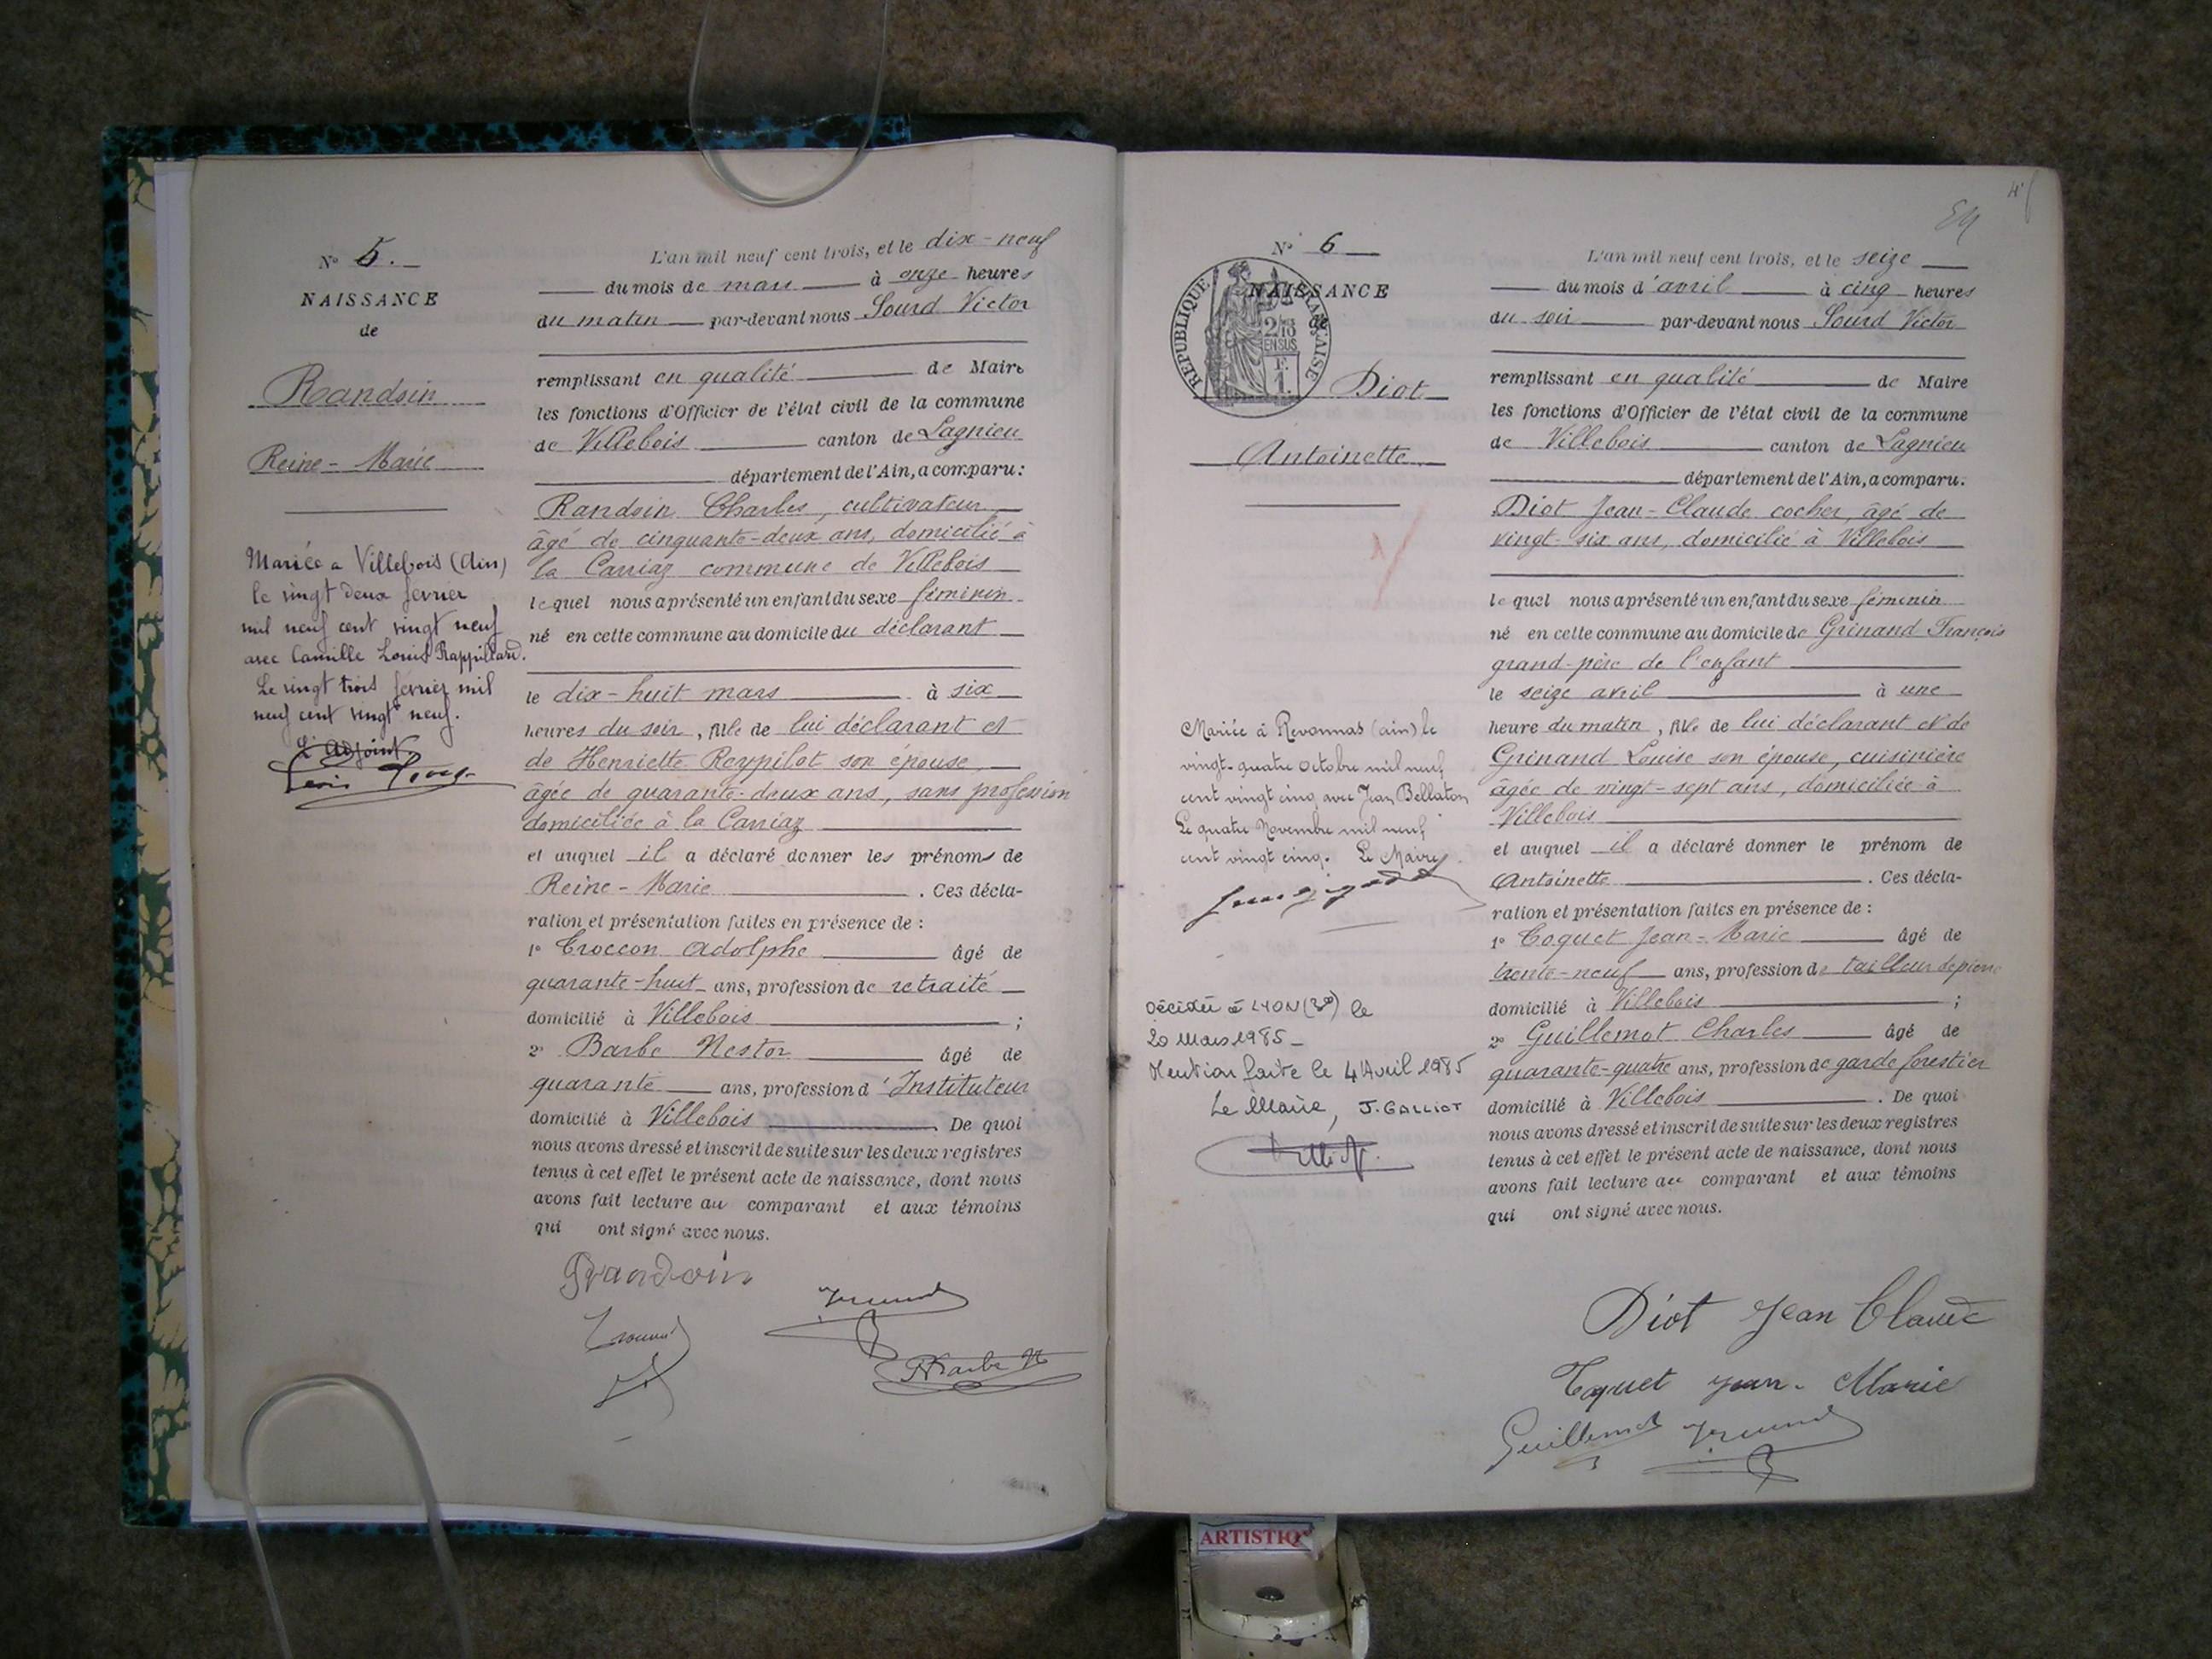 N° 5.
NAISSANCE
de
Randoin
Reine-Marie
Mariée a Villebois (Ain)
le vingt deux février
mil neuf cent vingt neuf
avec Camille Louis Rappillard.
Le vingt trois février mil
neuf cent vingt neuf.
L'adjoint,
L'an mil neuf cent trois, et le dix-neuf
du mois de mars à onze heures
du matin par-devant nous Sourd Victor
remplissant en qualité de Maire
les fonctions d'Officier de l'état civil de la commune
de Villebois canton de Lagnieu
département de l'Ain, a comparu:
Randoin Charles, cultivateur
âgé de cinquante-deux ans, domicilié à
la Carriaz commune de Villebois
lequel nous a présenté un enfant du sexe féminin
né en cette commune au domicile du déclarant
le dix-huit mars à six
heures du soir, fille de lui déclarant et
de Henriette Reypilot son épouse,
âgée de quarante-deux ans, sans profession
domiciliée à la Carriaz
et auquel il a déclaré donner les prénoms de
Reine-Marie. Ces décla-
ration et présentation faites en présence de :
1° Troccon Adolphe âgé de
quarante-huit ans, profession de retraité
domicilié à Villebois ;
2° Barbe Nestor âgé de
quarante ans, profession d'Instituteur
domicilié à Villebois. De quoi
nous avons dressé et inscrit de suite sur les deux registres
tenus à cet effet le présent acte de naissance, dont nous
avons fait lecture au comparant et aux témoins
qui ont signé avec nous.
Randoin
Barbe N
4
N° 6
NAISSANCE
de
REPUBLIQUE FRANÇAISE
2/10 EN SUS
F. 1.
Diot
Antoinette
Mariée à Revonnas (ain) le
vingt-quatre Octobre mil neuf
cent vingt cinq avec Jean Bellaton
Le quatre Novembre mil neuf
cent vingt cinq. Le Maire
Décédée à LYON (3e) le
20 Mars 1985 -
Mention faite le 4 Avril 1985
Le Maire, J. GALLIOT
L'an mil neuf cent trois, et le seize
du mois d'avril à cinq heures
du soir par-devant nous Sourd Victor
remplissant en qualité de Maire
les fonctions d'Officier de l'état civil de la commune
de Villebois canton de Lagnieu
département de l'Ain, a comparu.
Diot Jean-Claude cocher, âgé de
vingt-six ans, domicilié à Villebois
lequel nous a présenté un enfant du sexe féminin
né en cette commune au domicile de Grinand François
grand-père de l'enfant
le seize avril à une
heure du matin, fille de lui déclarant et de
Grinand Louise son épouse, cuisinière
âgée de vingt-sept ans, domiciliée à
Villebois
et auquel il a déclaré donner le prénom de
Antoinette. Ces décla-
ration et présentation faites en présence de :
1° Coquet Jean-Marie âgé de
trente-neuf ans, profession de tailleur de pierre
domicilié à Villebois ;
2° Guillemot Charles âgé de
quarante-quatre ans, profession de garde forestier
domicilié à Villebois. De quoi
nous avons dressé et inscrit de suite sur les deux registres
tenus à cet effet le présent acte de naissance, dont nous
avons fait lecture au comparant et aux témoins
qui ont signé avec nous.
Diot Jean Claude
Coquet Jean-Marie
Guillemot
ARTISTIQ